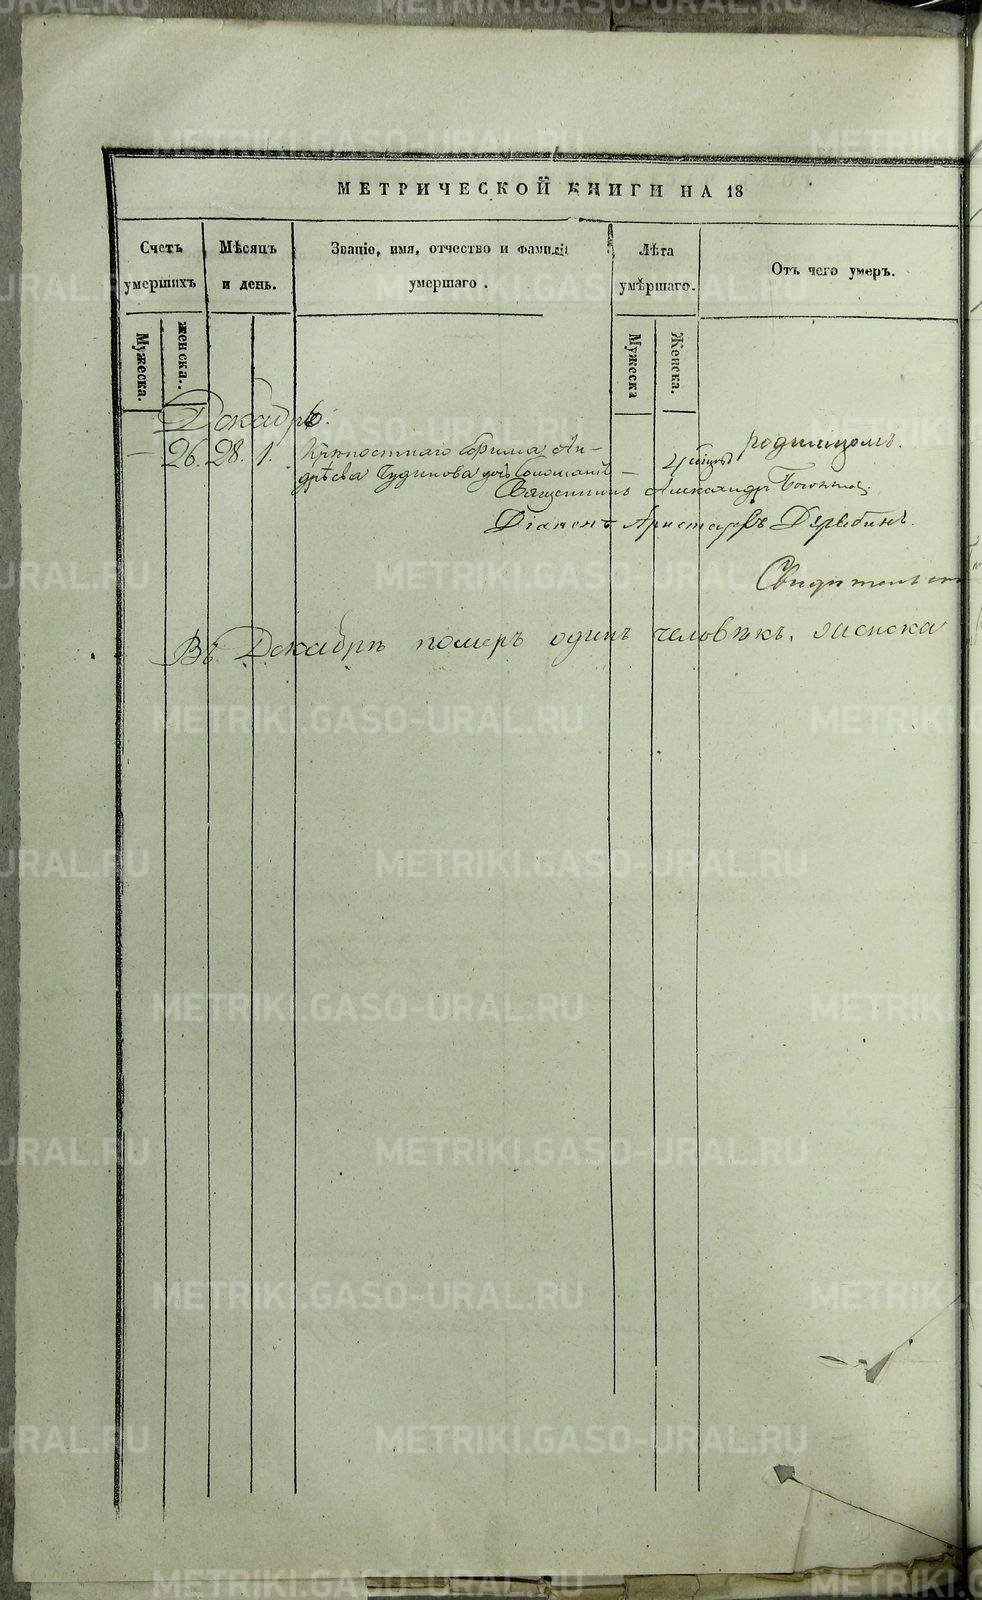 МЕТРИЧЕСКОЙ КНИГИ НА 18
Счетъ умершихъ
Мѣсяцъ и день.
Званіе, имя, отчество и фамилія умершаго.
Лѣта умѣршаго.
Отъ чего умеръ.
Мужеска.
женска..
Мужеска
Женска.
Декабрь.
— 26. 28. 1. Крѣпостнаго Ефима Ан- — родимцомъ.
дрѣева Чудинова дочь
Священникъ Александръ
Діаконъ Аристархъ Дерябинъ.
Въ Декабрѣ померъ одинъ человѣкъ, женска
METRIKI.GASO-URAL.RU